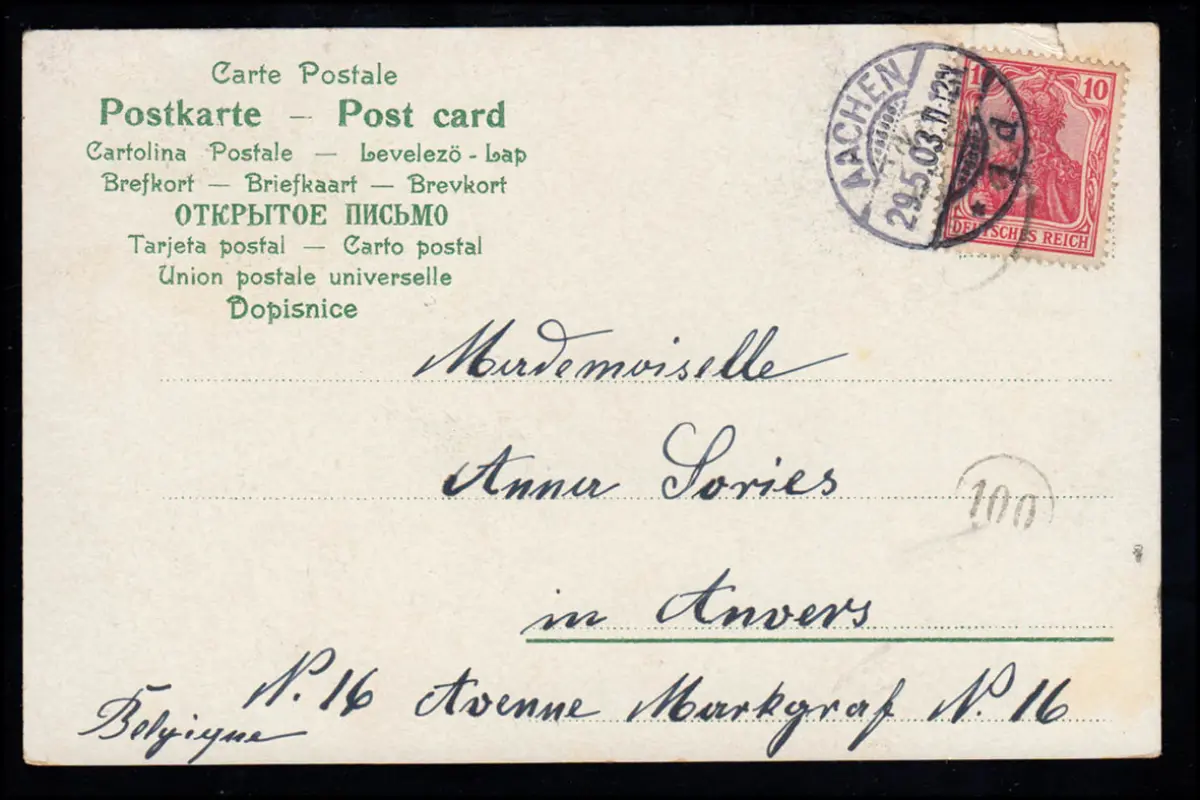 Carte Postale
Postkarte — Post card
Cartolina Postale — Levelezö-Lap
Brefkort — Briefkaart — Brevkort
ОТКРЫТОЕ ПИСЬМО
Tarjeta postal — Carto postal
Union postale universelle
Dopisnice
AACHEN
29.5.03.11-12N
* 1d
10 10
DEUTSCHES REICH
Mademoiselle
Anna Sories
100
in Anvers
N. 16 Avenue Markgraf N. 16
Belgique